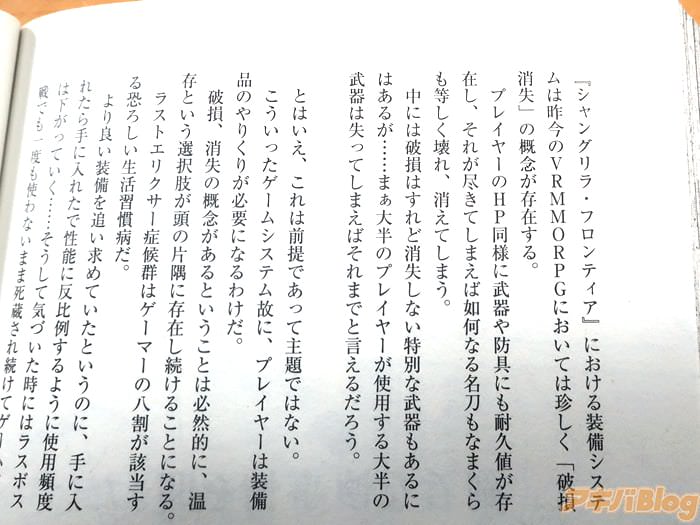 『シャングリラ・フロンティア』における装備システ
ムは昨今のVRMMORPGにおいては珍しく「破損
消失」の概念が存在する。
プレイヤーのHP同様に武器や防具にも耐久値が存
在し、それが尽きてしまえば如何なる名刀もなまくら
も等しく壊れ、消えてしまう。
中には破損はすれど消失しない特別な武器もあるに
はあるが……まぁ大半のプレイヤーが使用する大半の
武器は失ってしまえばそれまでと言えるだろう。
とはいえ、これは前提であって主題ではない。
こういったゲームシステム故に、プレイヤーは装備
品のやりくりが必要になるわけだ。
破損、消失の概念があるということは必然的に、温
存という選択肢が頭の片隅に存在し続けることになる。
ラストエリクサー症候群はゲーマーの八割が該当す
る恐ろしい生活習慣病だ。
より良い装備を追い求めていたというのに、手に入
れたら手に入れたで性能に反比例するように使用頻度
は下がっていく……そうして気づいた時にはラスボス
戦でも一度も使わないまま死蔵され続けてゲーム
アキバBlog